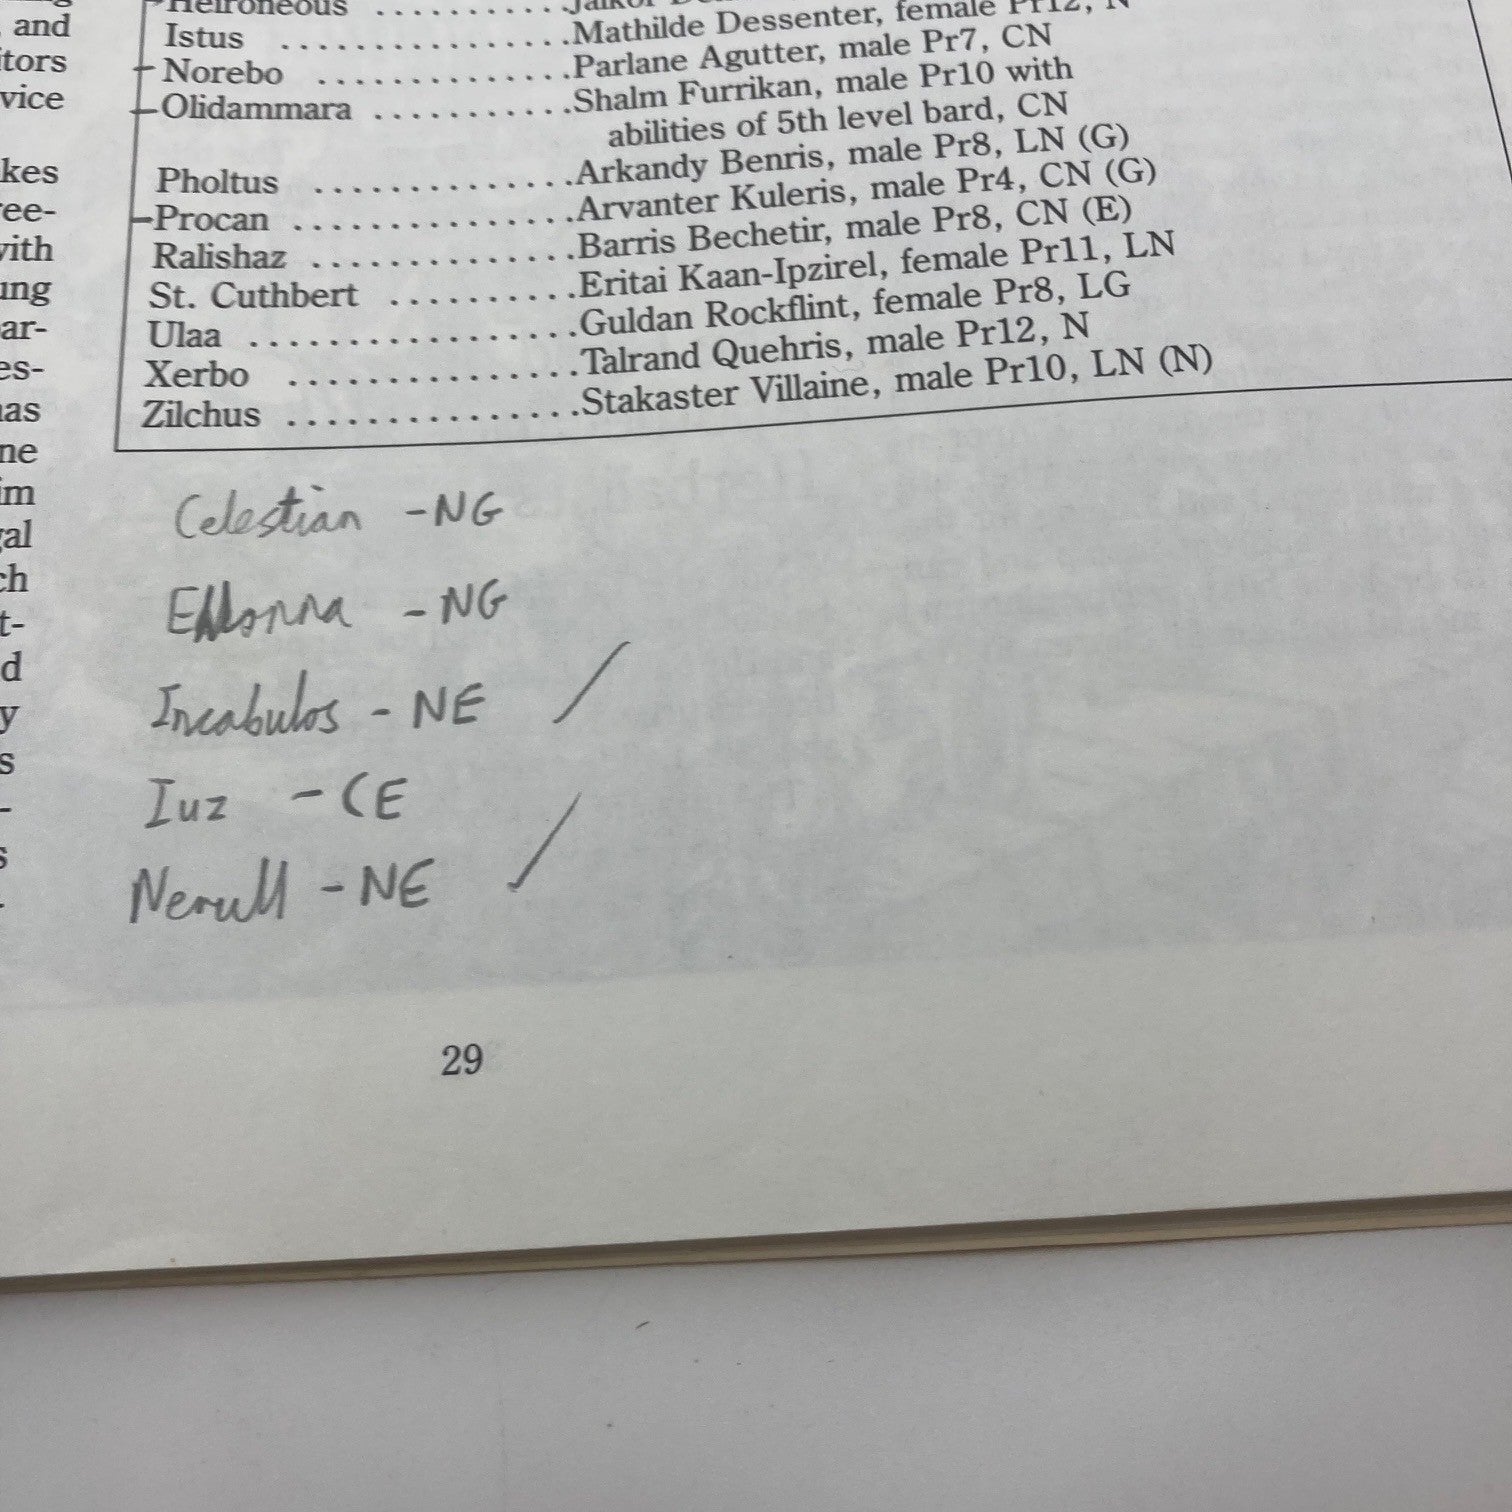 and
tors
vice
kes
ee-
vith
ung
ar-
es-
as
ne
im
gal
ch
t-
d
y
s
-
s
Heironeous ...........
Istus ................Mathilde Dessenter, female Pr12, N
Norebo ..............Parlane Agutter, male Pr7, CN
Olidammara ...........Shalm Furrikan, male Pr10 with
abilities of 5th level bard, CN
Pholtus ..............Arkandy Benris, male Pr8, LN (G)
Procan ................Arvanter Kuleris, male Pr4, CN (G)
Ralishaz ...............Barris Bechetir, male Pr8, CN (E)
St. Cuthbert ..........Eritai Kaan-Ipzirel, female Pr11, LN
Ulaa ..................Guldan Rockflint, female Pr8, LG
Xerbo ................Talrand Quehris, male Pr12, N
Zilchus ................Stakaster Villaine, male Pr10, LN (N)
Celestian - NG
Ehlonna - NG
Incabulos - NE /
Iuz - CE
Nerull - NE /
29